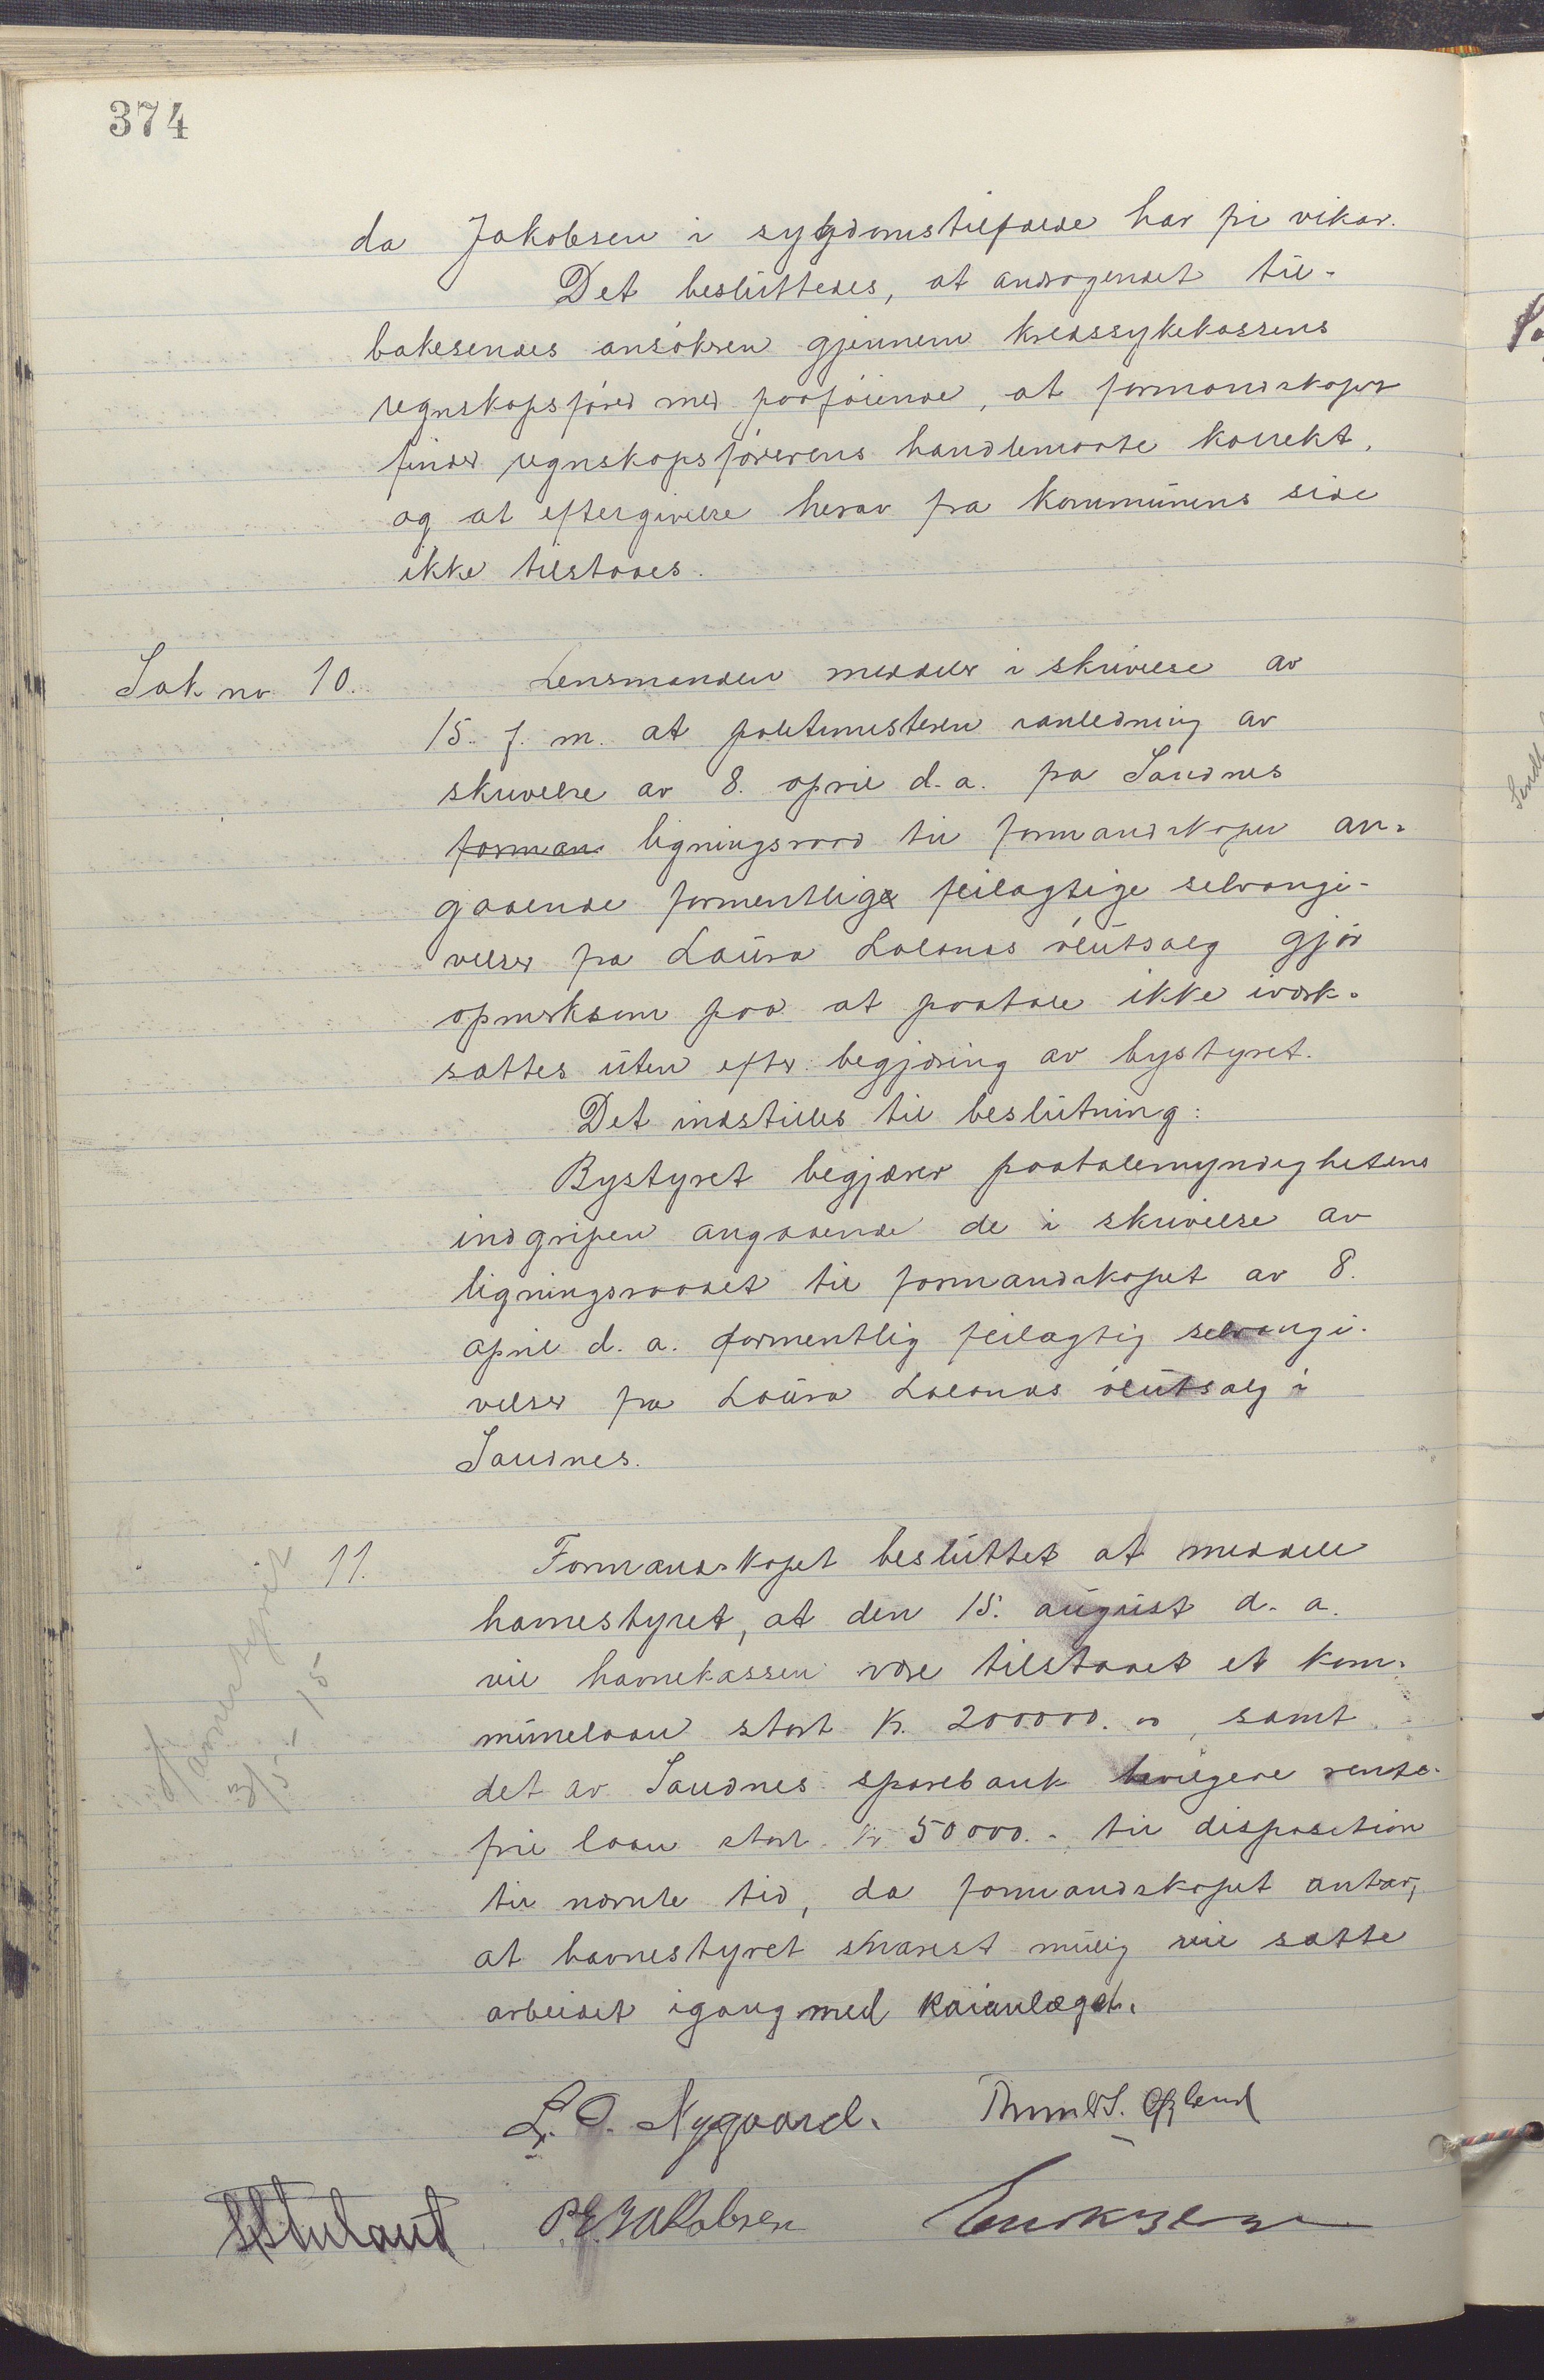 374
da Jakobsen i sygdomstilfælde har fri vikar.
Det besluttedes, at andragendet til-
bakesendes ansökeren gjennem kredssykekassens
regnskapsförer med paaföiende, at formandskapet
finder regnskapsförerens handlemaate korrekt,
og at eftergivelse herav fra kommunens side
ikke tilstaaes.
Sak nr 10. Lensmanden meddeler i skrivelse av
15. f. m. at politimesteren i anledning av
skrivelse av 8. april d. a. fra Sandnes
forman ligningsraad til formandskapet an-
gaaende formentlige feilagtige selvangi-
velser fra Laura Lalands ölutsalg gjör
opmerksom paa at paatale ikke iverk-
sættes uten efter begjæring av bystyret.
Det indstilles til beslutning:
Bystyret begjærer paatalemyndighetens
indgripen angaaende de i skrivelse av
ligningsraadet til formandskapet av 8.
april d. a. formentlig feilagtig selvangi-
velser fra Laura Lalands ölutsalg i
Sandnes.
11. Formandskapet besluttet at meddele
havnestyret, at den 15. august d. a.
vil havnekassen være tilstaaet et kom-
munelaan stort kr. 200000.00, samt
det av Sandnes sparebank bevilgede rente-
frie laan stort kr 50000.- til disposition
til nævnte tid, da formandskapet antar,
at havnestyret snarest mulig vil sætte
arbeidet igang med kaianlæget.
Havnestyret
3/5 - 15
L. O. Nygaard.
P. E. Jakobsen